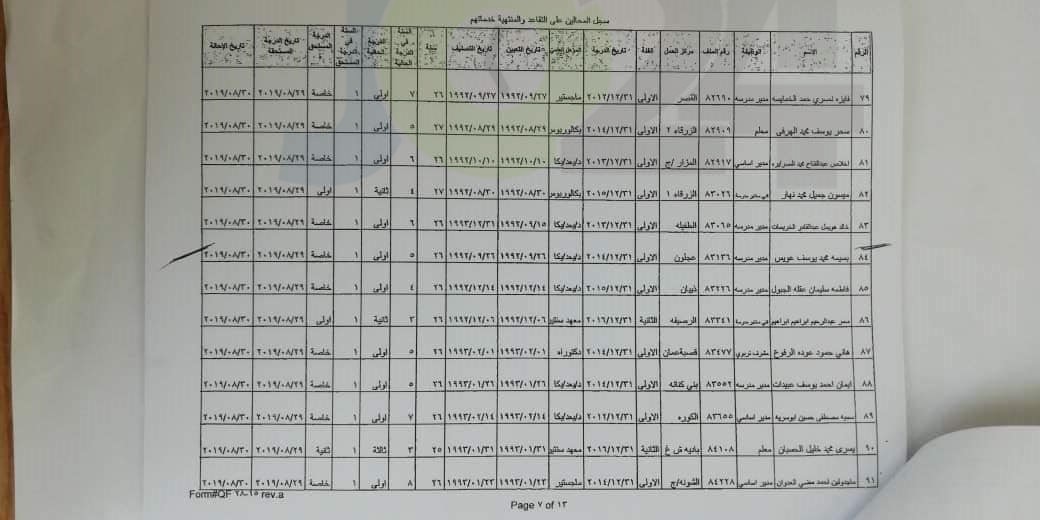 سجل المحالين على التقاعد والمنتهية خدماتهم
الرقم الاسم الوظيفة رقم الملف مركز العمل الفئة تاريخ الدرجة المؤهل العلمي تاريخ التعيين تاريخ التصنيف سنة السنة في الدرجة الحالية الدرجة الحالية السنة في الدرجة المستحق الدرجة المستحق تاريخ الدرجة المستحقة تاريخ الاحالة
٧٩ فايزه نصري حمد الخمايسه مدير مدرسه ٨٢٦٩٠ القصر الاولى ٢٠١٢/١٢/٣١ ماجستير ١٩٩٢/٠٩/٢٧ ١٩٩٢/٠٩/٢٧ ٢٦ ٧ اولى ١ خاصة ٢٠١٩/٠٨/٢٩ ٢٠١٩/٠٨/٣٠
٨٠ سحر يوسف محمد الهرفي معلم ٨٢٩٠٩ الزرقاء ٢ الاولى ٢٠١٤/١٢/٣١ بكالوريوس ١٩٩٢/٠٨/٢٩ ١٩٩٢/٠٨/٢٩ ٢٧ ٥ اولى ١ خاصة ٢٠١٩/٠٨/٢٩ ٢٠١٩/٠٨/٣٠
٨١ اخلاص عبدالفتاح محمد الصرايره مدير اساسي ٨٢٩١٧ المزار /ج الاولى ٢٠١٣/١٢/٣١ د/بعد/بكا ١٩٩٢/١٠/١٠ ١٩٩٢/١٠/١٠ ٢٦ ٦ اولى ١ خاصة ٢٠١٩/٠٨/٢٩ ٢٠١٩/٠٨/٣٠
٨٢ ميسون جميل محمد نهار ٨٣٠٢٦ الزرقاء ١ الاولى ٢٠١٥/١٢/٣١ بكالوريوس ١٩٩٢/٠٨/٣٠ ١٩٩٢/٠٨/٣٠ ٢٧ ٤ ثانية ١ اولى ٢٠١٩/٠٨/٢٩ ٢٠١٩/٠٨/٣٠
٨٣ خالد هويمل عبدالقادر الخريسات مدير مدرسه ٨٣٠٦٥ الطفيله الاولى ٢٠١٣/١٢/٣١ د/بعد/بكا ١٩٩٢/٠٩/١٥ ١٩٩٣/١٢/٣١ ٢٦ ٦ اولى ١ خاصة ٢٠١٩/٠٨/٢٩ ٢٠١٩/٠٨/٣٠
٨٤ بسيمه محمد يوسف عويس مدير مدرسه ٨٣١٣٦ عجلون الاولى ٢٠١٤/١٢/٣١ د/بعد/بكا ١٩٩٢/٠٩/٢٦ ١٩٩٢/٠٩/٢٦ ٢٦ ٥ اولى ١ خاصة ٢٠١٩/٠٨/٢٩ ٢٠١٩/٠٨/٣٠
٨٥ فاطمه سليمان عقله الجبول مدير مدرسه ٨٣٢٢٦ ذيبان الاولى ٢٠١٥/١٢/٣١ د/بعد/بكا ١٩٩٢/١٢/١٤ ١٩٩٢/١٢/١٤ ٢٦ ٤ اولى ١ خاصة ٢٠١٩/٠٨/٢٩ ٢٠١٩/٠٨/٣٠
٨٦ سمر عبدالرحيم ابراهيم ابراهيم ٨٣٣٤١ الرصيفه الثانية ٢٠١٦/١٢/٣١ معهد سنتين ١٩٩٢/١٢/٠٦ ١٩٩٢/١٢/٠٦ ٢٦ ٣ ثانية ١ اولى ٢٠١٩/٠٨/٢٩ ٢٠١٩/٠٨/٣٠
٨٧ هاني حمود عوده الرفوع مشرف تربوي ٨٣٤٧٧ قصبةعمان الاولى ٢٠١٤/١٢/٣١ دكتوراه ١٩٩٣/٠٢/٠١ ١٩٩٣/٠٢/٠١ ٢٦ ٥ اولى ١ خاصة ٢٠١٩/٠٨/٢٩ ٢٠١٩/٠٨/٣٠
٨٨ ايمان احمد يوسف عبيدات مدير مدرسه ٨٣٥٥٢ بني كنانه الاولى ٢٠١٤/١٢/٣١ د/بعد/بكا ١٩٩٣/٠١/٢٦ ١٩٩٣/٠١/٢٦ ٢٦ ٥ اولى ١ خاصة ٢٠١٩/٠٨/٢٩ ٢٠١٩/٠٨/٣٠
٨٩ سميه مصطفى حسين ابوسريه مدير اساسي ٨٣٦٥٥ الكوره الاولى ٢٠١٢/١٢/٣١ د/بعد/بكا ١٩٩٣/٠٢/١٤ ١٩٩٣/٠٢/١٤ ٢٦ ٧ اولى ١ خاصة ٢٠١٩/٠٨/٢٩ ٢٠١٩/٠٨/٣٠
٩٠ يسرى محمد خليل الحسبان معلم ٨٤١٠٨ باديه ش غ الثانية ٢٠١٦/١٢/٣١ معهد سنتين ١٩٩٣/٠١/٣١ ١٩٩٣/٠١/٣١ ٢٥ ٣ ثالثة ١ ثانية ٢٠١٩/٠٨/٢٩ ٢٠١٩/٠٨/٣٠
٩١ ماجدولين احمد مضي العدوان مدير اساسي ٨٤٢٢٨ الشونه/ج الاولى ٢٠١٤/١٢/٣١ ماجستير ١٩٩٣/٠١/٢٣ ١٩٩٣/٠١/٢٣ ٢٦ ٨ اولى ١ خاصة ٢٠١٩/٠٨/٢٩ ٢٠١٩/٠٨/٣٠
Form#QF ٧٨-١٥ rev.a
Page ٧ of ١٣